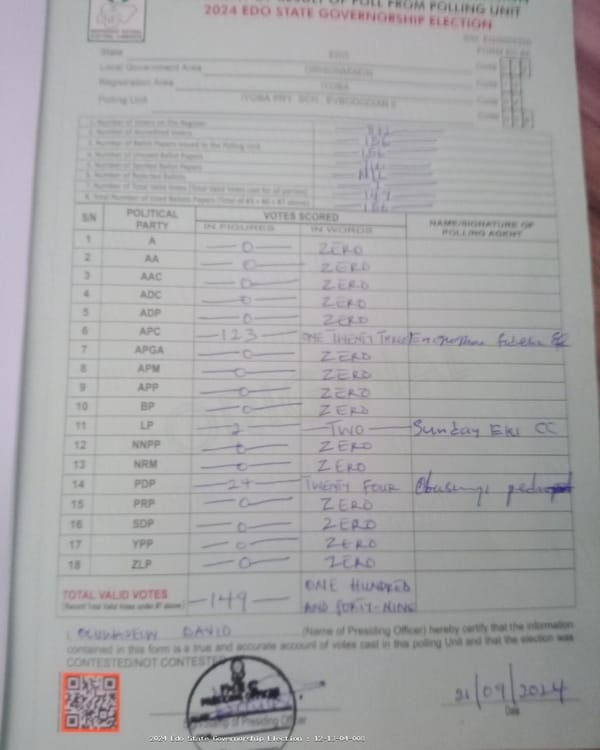 RESULT OF POLL FROM POLLING UNIT
2024 EDO STATE GOVERNORSHIP ELECTION
State EDO
Local Government Area
Registration Area IYOBA
Polling Unit IYOBA PRY. SCH.
1. Number of Voters on the Register
2. Number of Accredited Voters 156
3. Number of Ballot Papers Issued to the Polling Unit
4. Number of Unused Ballot Papers
5. Number of Spoiled Ballot Papers NIL
6. Number of Rejected Ballots
7. Number of Total Valid Votes (Total Valid Votes cast for all parties) 149
8. Total Number of Used Ballot Papers (Total of #5 + #6 + #7 above) 156
S/N POLITICAL PARTY VOTES SCORED NAME/SIGNATURE OF POLLING AGENT
IN FIGURES IN WORDS
1 A 0 ZERO
2 AA 0 ZERO
3 AAC 0 ZERO
4 ADC 0 ZERO
5 ADP 0 ZERO
6 APC 123 ONE TWENTY THREE
7 APGA 0 ZERO
8 APM 0 ZERO
9 APP 0 ZERO
10 BP 0 ZERO
11 LP 2 TWO Sunday EKI CC
12 NNPP 0 ZERO
13 NRM 0 ZERO
14 PDP 24 TWENTY FOUR
15 PRP 0 ZERO
16 SDP 0 ZERO
17 YPP 0 ZERO
18 ZLP 0 ZERO
TOTAL VALID VOTES 149 ONE HUNDRED
(Record Total Valid Votes under #7 above) AND FORTY-NINE
I, DAVID (Name of Presiding Officer) hereby certify that the information
contained in this form is a true and accurate account of votes cast in this polling Unit and that the election was
CONTESTED/NOT CONTESTED
21/09/2024
Signature of Presiding Officer Date
2024 Edo State Governorship Election : 12-13-04-008